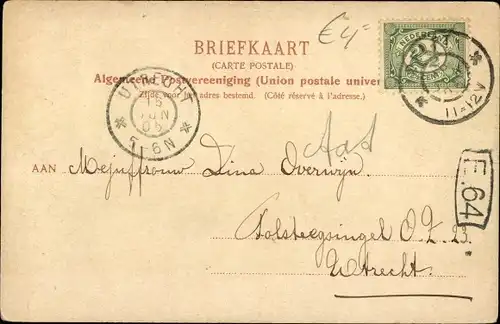 €4=
BRIEFKAART
(CARTE POSTALE)
Algemeene Postvereeniging (Union postale univer
Zijde voor het adres bestemd. (Côté réservé à l'adresse.)
NEDERLAND
2½
CENT
11-12V
UTRECHT
15
JUN
06
5-6N
AAN Mejuffrouw Dina Overwijn.
Catsteegsingel O.Z. 23.
Utrecht.
E.64